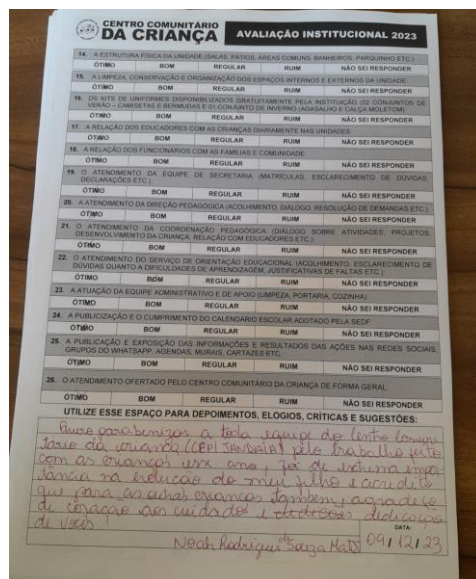 CENTRO COMUNITÁRIO
DA CRIANÇA
AVALIAÇÃO INSTITUCIONAL 2023
14. A ESTRUTURA FÍSICA DA UNIDADE (SALAS, PÁTIOS, ÁREAS COMUNS, BANHEIROS, PARQUINHO ETC.)
ÓTIMO BOM REGULAR RUIM NÃO SEI RESPONDER
15. A LIMPEZA, CONSERVAÇÃO E ORGANIZAÇÃO DOS ESPAÇOS INTERNOS E EXTERNOS DA UNIDADE
ÓTIMO BOM REGULAR RUIM NÃO SEI RESPONDER
16. OS KITS DE UNIFORMES DISPONIBILIZADOS GRATUITAMENTE PELA INSTITUIÇÃO (02 CONJUNTOS DE
VERÃO – CAMISETAS E BERMUDAS E 01 CONJUNTO DE INVERNO (AGASALHO E CALÇA MOLETOM)
ÓTIMO BOM REGULAR RUIM NÃO SEI RESPONDER
17. A RELAÇÃO DOS EDUCADORES COM AS CRIANÇAS DIARIAMENTE NAS UNIDADES
ÓTIMO BOM REGULAR RUIM NÃO SEI RESPONDER
18. A RELAÇÃO DOS FUNCIONÁRIOS COM AS FAMÍLIAS E COMUNIDADE
ÓTIMO BOM REGULAR RUIM NÃO SEI RESPONDER
19. O ATENDIMENTO DA EQUIPE DE SECRETARIA (MATRÍCULAS, ESCLARECIMENTO DE DÚVIDAS,
DECLARAÇÕES ETC.)
ÓTIMO BOM REGULAR RUIM NÃO SEI RESPONDER
20. A ATENDIMENTO DA DIREÇÃO PEDAGÓGICA (ACOLHIMENTO, DIÁLOGO, RESOLUÇÃO DE DEMANDAS ETC.)
ÓTIMO BOM REGULAR RUIM NÃO SEI RESPONDER
21. O ATENDIMENTO DA COORDENAÇÃO PEDAGÓGICA (DIÁLOGO SOBRE ATIVIDADES, PROJETOS,
DESENVOLVIMENTO DA CRIANÇA, RELAÇÃO COM EDUCADORES ETC.)
ÓTIMO BOM REGULAR RUIM NÃO SEI RESPONDER
22. O ATENDIMENTO DO SERVIÇO DE ORIENTAÇÃO EDUCACIONAL (ACOLHIMENTO, ESCLARECIMENTO DE
DÚVIDAS QUANTO A DIFICULDADES DE APRENDIZAGEM, JUSTIFICATIVAS DE FALTAS ETC.)
ÓTIMO BOM REGULAR RUIM NÃO SEI RESPONDER
23. A ATUAÇÃO DA EQUIPE ADMINISTRATIVO E DE APOIO (LIMPEZA, PORTARIA, COZINHA)
ÓTIMO BOM REGULAR RUIM NÃO SEI RESPONDER
24. A PUBLICIZAÇÃO E O CUMPRIMENTO DO CALENDÁRIO ESCOLAR ADOTADO PELA SEDF
ÓTIMO BOM REGULAR RUIM NÃO SEI RESPONDER
25. A PUBLICAÇÃO E EXPOSIÇÃO DAS INFORMAÇÕES E RESULTADOS DAS AÇÕES NAS REDES SOCIAIS,
GRUPOS DO WHATSAPP, AGENDAS, MURAIS, CARTAZES ETC.
ÓTIMO BOM REGULAR RUIM NÃO SEI RESPONDER
26. O ATENDIMENTO OFERTADO PELO CENTRO COMUNITÁRIO DA CRIANÇA DE FORMA GERAL:
ÓTIMO BOM REGULAR RUIM NÃO SEI RESPONDER
UTILIZE ESSE ESPAÇO PARA DEPOIMENTOS, ELOGIOS, CRÍTICAS E SUGESTÕES:
parabenizar a toda equipe do Centro Comuni
tário da criança (CEPI JANDAIA) pelo trabalho feito
com as crianças esse ano, foi de extrema impor
tância na educação do meu filho e acredito
que para as outras crianças também, agradeço
de coração aos cuidados e dedicação
de vocês
DATA:
Noah Rodrigues de Souza Matos 09/12/23